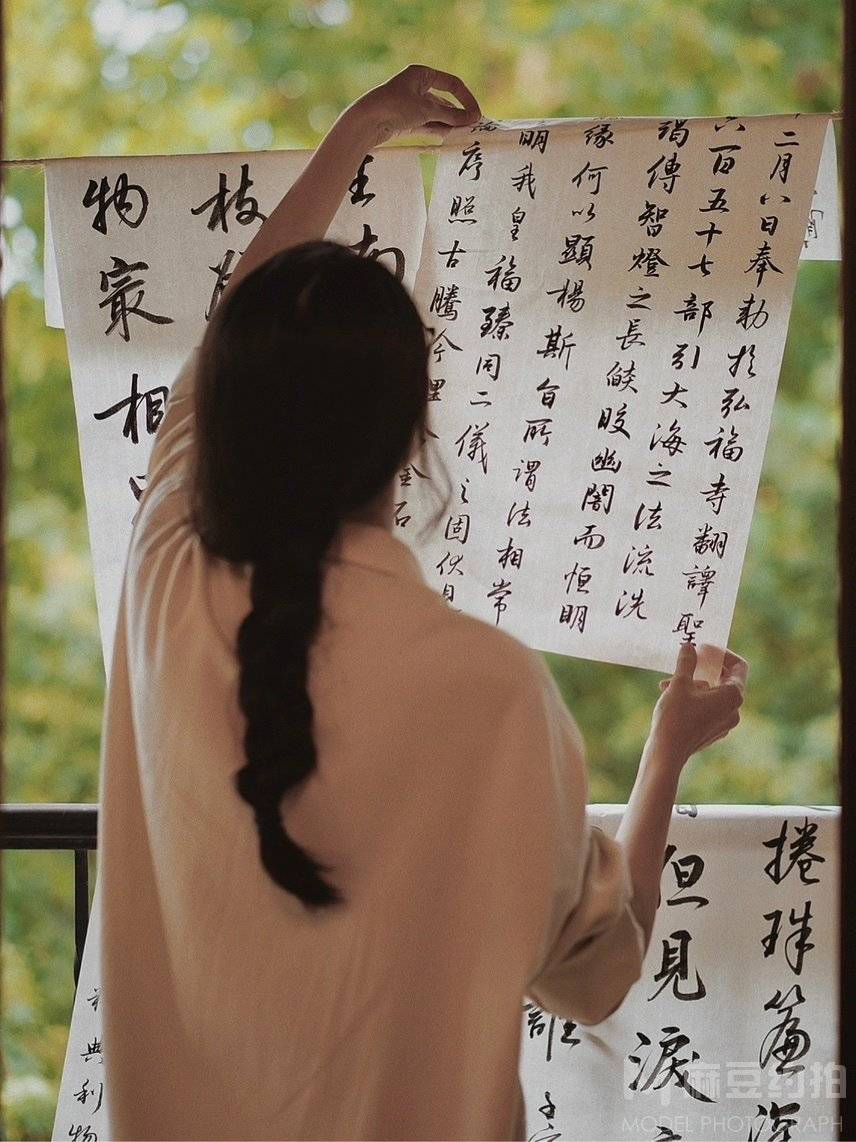 二月八日奉勅於弘福寺翻譯聖
六百五十七部引大海之法流洗
竭傳智燈之長燄皎幽闇而恒明
緣何以顯楊斯旨所謂法相常
明我皇福臻同二儀之固伏見
序照古騰今理含金石
南
枝
物最相
捲珠簾深
但見淚
誰
典利物
麻豆约拍
MODEL PHOTOGRAPH